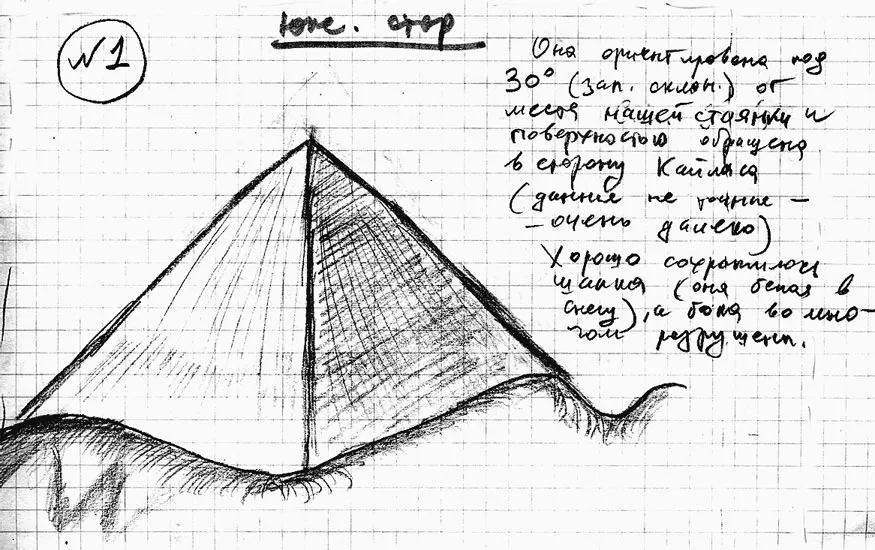 №1
Юж. стор
Она ориентирована под
30° (зап. склон.) от
места нашей стоянки и
поверхностью обращена
в сторону Кайласа
(данные не точные –
– очень далеко)
Хорошо сохранилась
шапка (она белая в
снегу), а бока во мно-
гом разрушены.